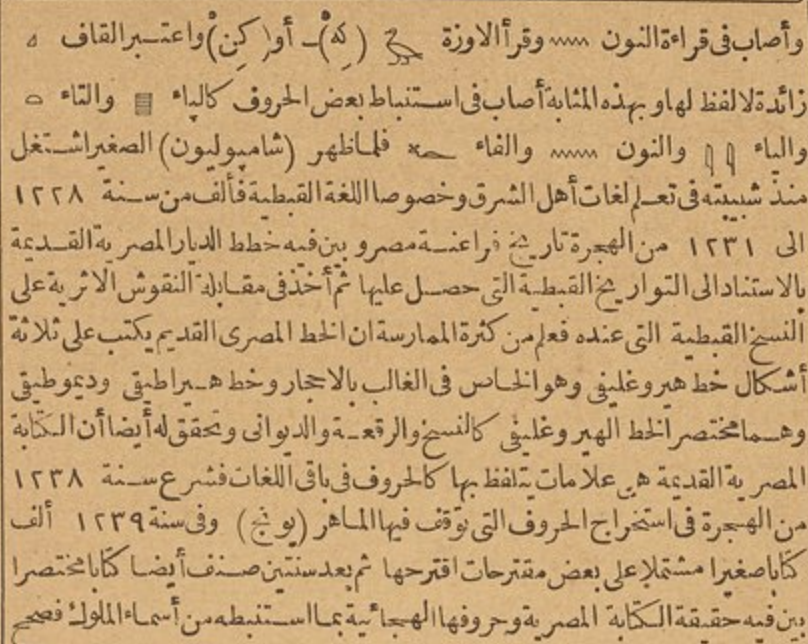 وأصاب فى قراءة النون 𓈖 وقرأ الاوزة 𓅬 (كِهْ) ـ أو (كِنْ) واعتـبر القاف 𓈎
زائدة لا لفظ لها وبهذه المثابة أصاب فى استنباط بعض الحروف كالباء 𓊪 والتاء 𓏏
والياء 𓇌 والنون 𓈖 والفاء 𓆑 فلما ظهر (شامپوليون) الصغير اشتغل
منذ شبيبته فى تعـلم لغات أهل الشرق وخصوصا اللغة القبطية فألف من سـنة ١٢٢٨
الى ١٢٣١ من الهجرة تاريخ فراعنـة مصر وبين فيه خطط الديار المصرية القـديمة
بالاستناد الى التواريخ القبطـية التى حصـل عليها ثم أخذ فى مقـابلة النقوش الاثرية على
النسخ القبطية التى عنده فعلم من كثرة الممارسة ان الخط المصرى القديم يكتب على ثلاثة
أشكال خط هيروغليفى وهو الخاص فى الغالب بالاحجار وخط هـيراطيقى وديموطيقى
وهـما مختصر الخط الهيروغليفى كالنسخ والرقعـة والديوانى وتحقق له أيضا أن الكتابة
المصرية القديمة هى علامات يتلفظ بها كالحروف فى باقى اللغات فشرع سـنة ١٢٣٨
من الهجرة فى استخراج الحروف التى توقف فيها الماهر (يونج) وفى سنة ١٢٣٩ ألف
كتابا صغيرا مشتملا على بعض مقترحات اقترحها ثم بعد سنتين صـنف أيضا كتابا مختصرا
بين فيه حقيقة الكتابة المصرية وحروفها الهجائية بما استنبطه من أسماء الملوك فصحح